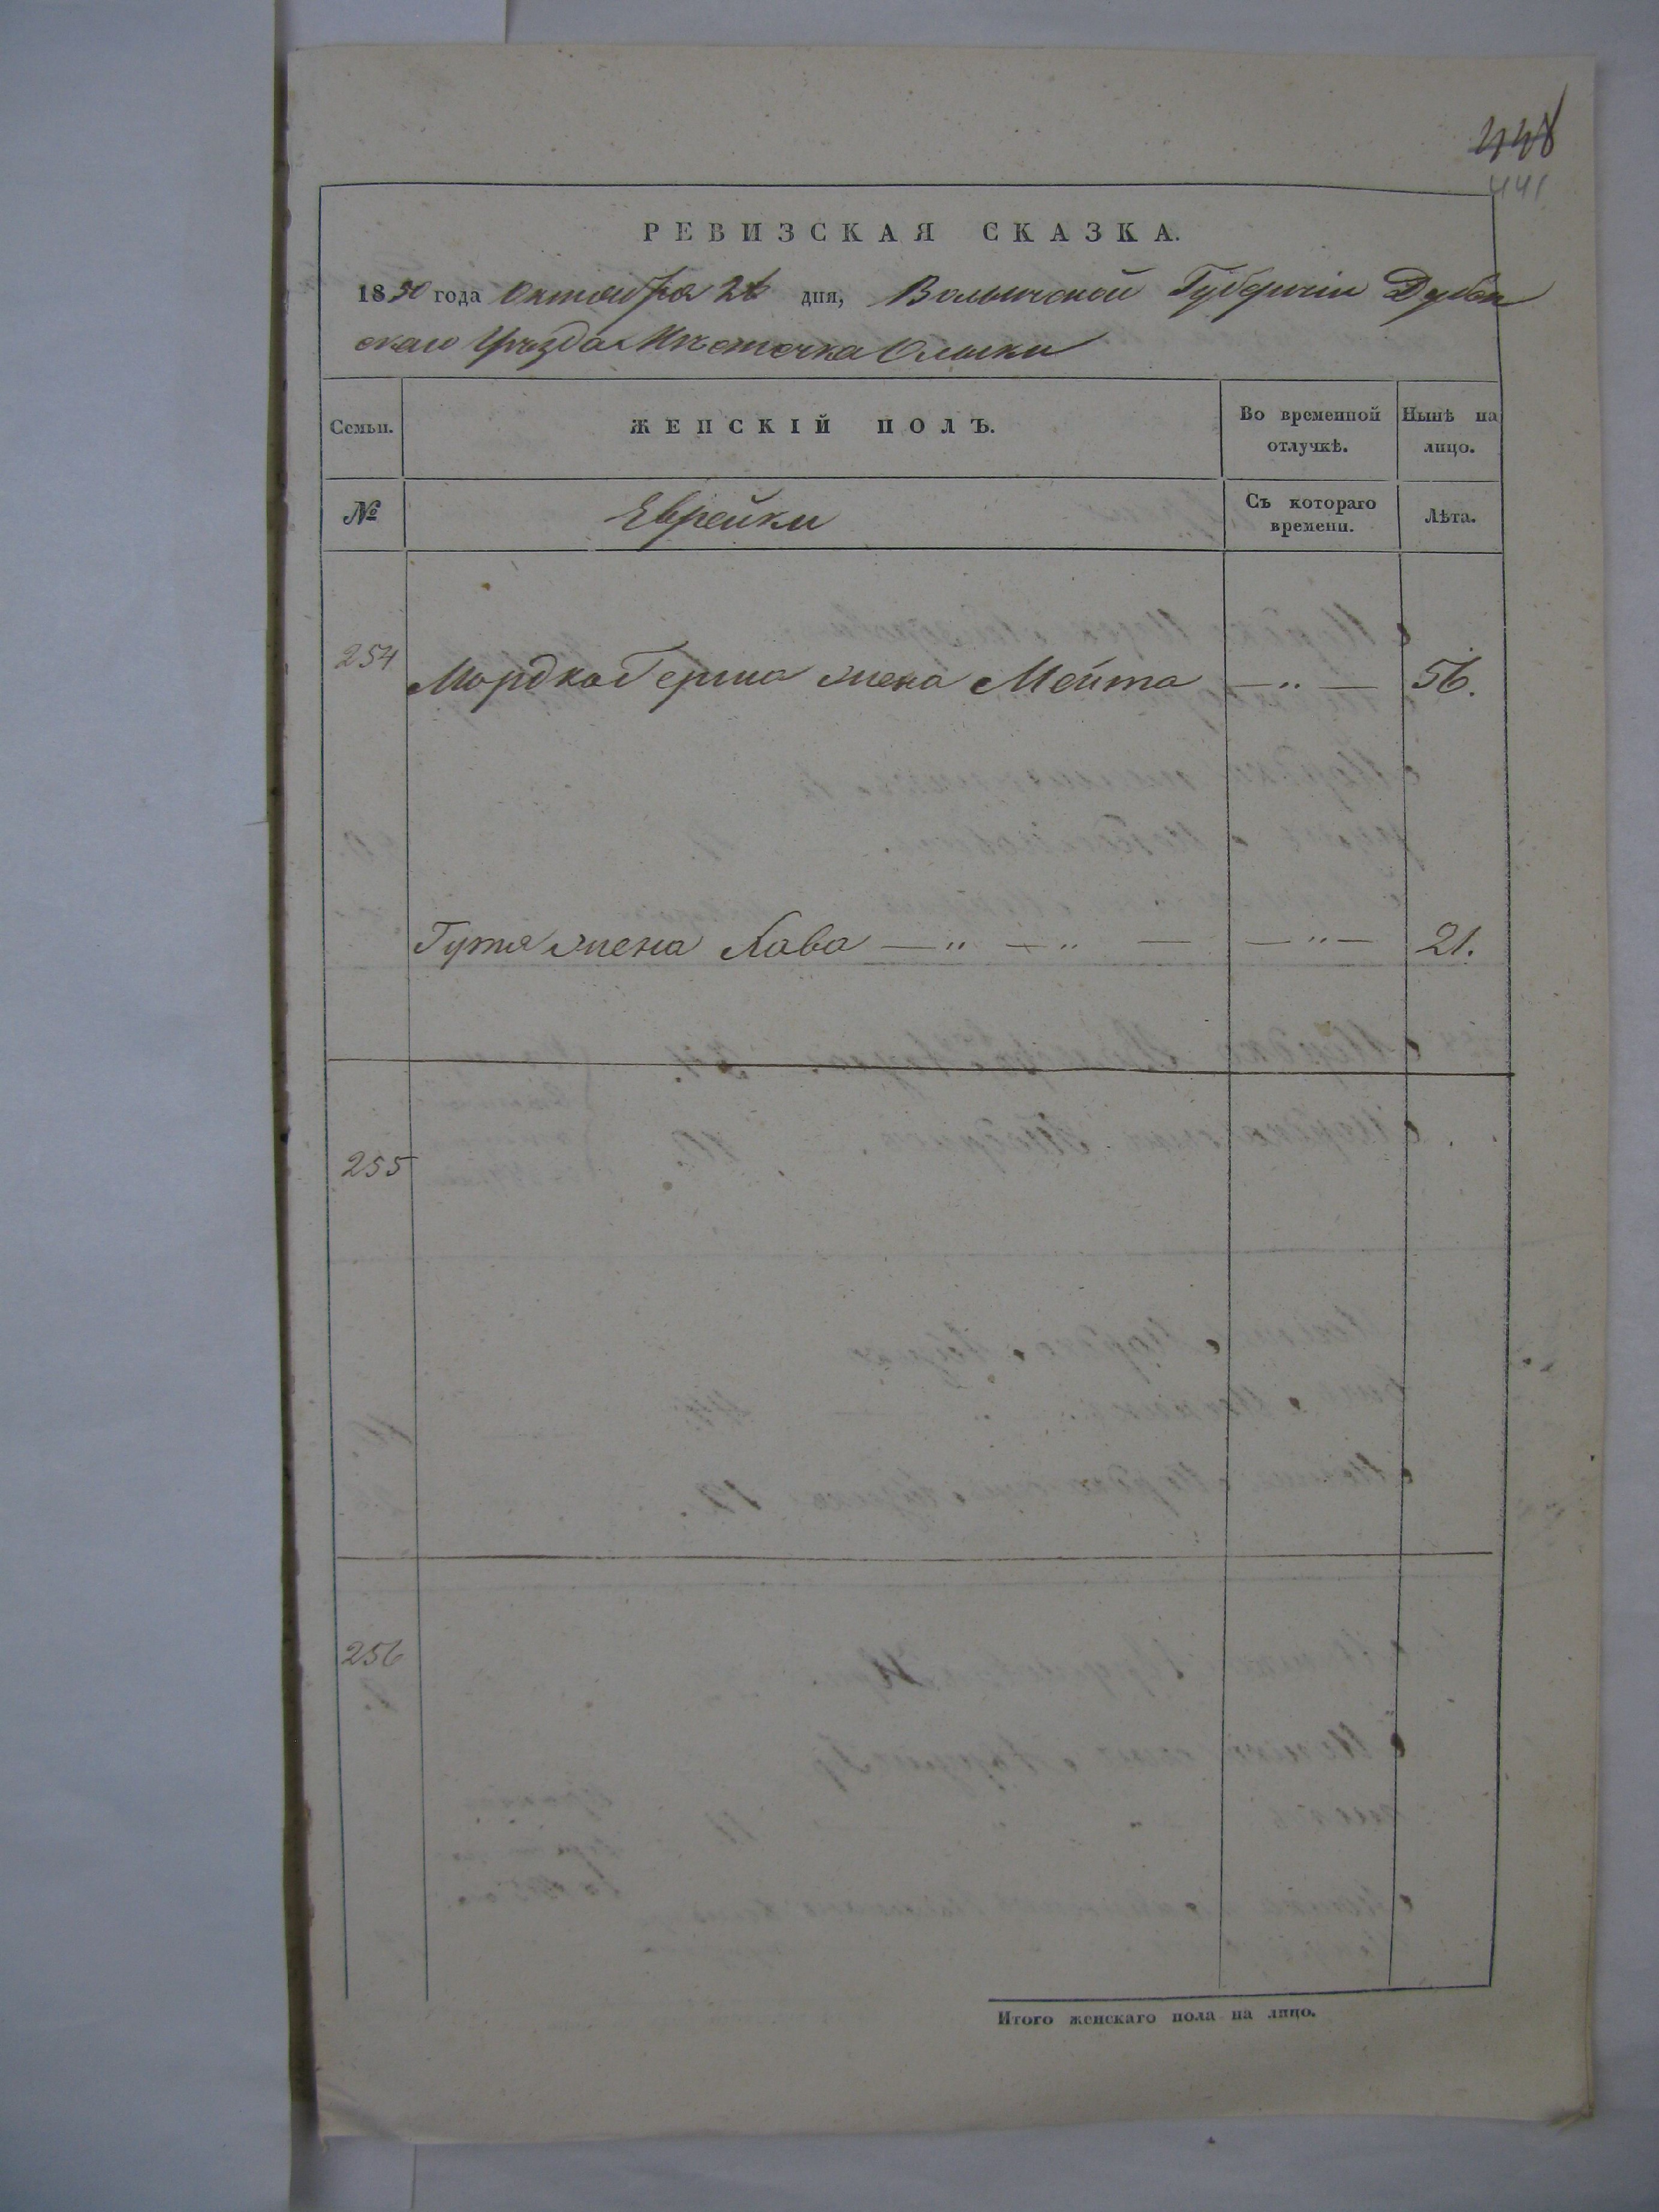 448
441
РЕВИЗСКАЯ СКАЗКА.
1850 года Октября 26 дня, Волынской Губерніи Дубен
скаго Уѣзда Мѣстечка Олыки
Семьи. ЖЕНСКІЙ ПОЛЪ. Во временной отлучкѣ. Нынѣ на лицо.
№ Еврейки Съ котораго времени. Лѣта.
254 Мордка Герша жена Мейта — „ — 56.
Гутя жена Хава — „ — „ — — „ — 21.
255
256
Итого женскаго пола на лицо.